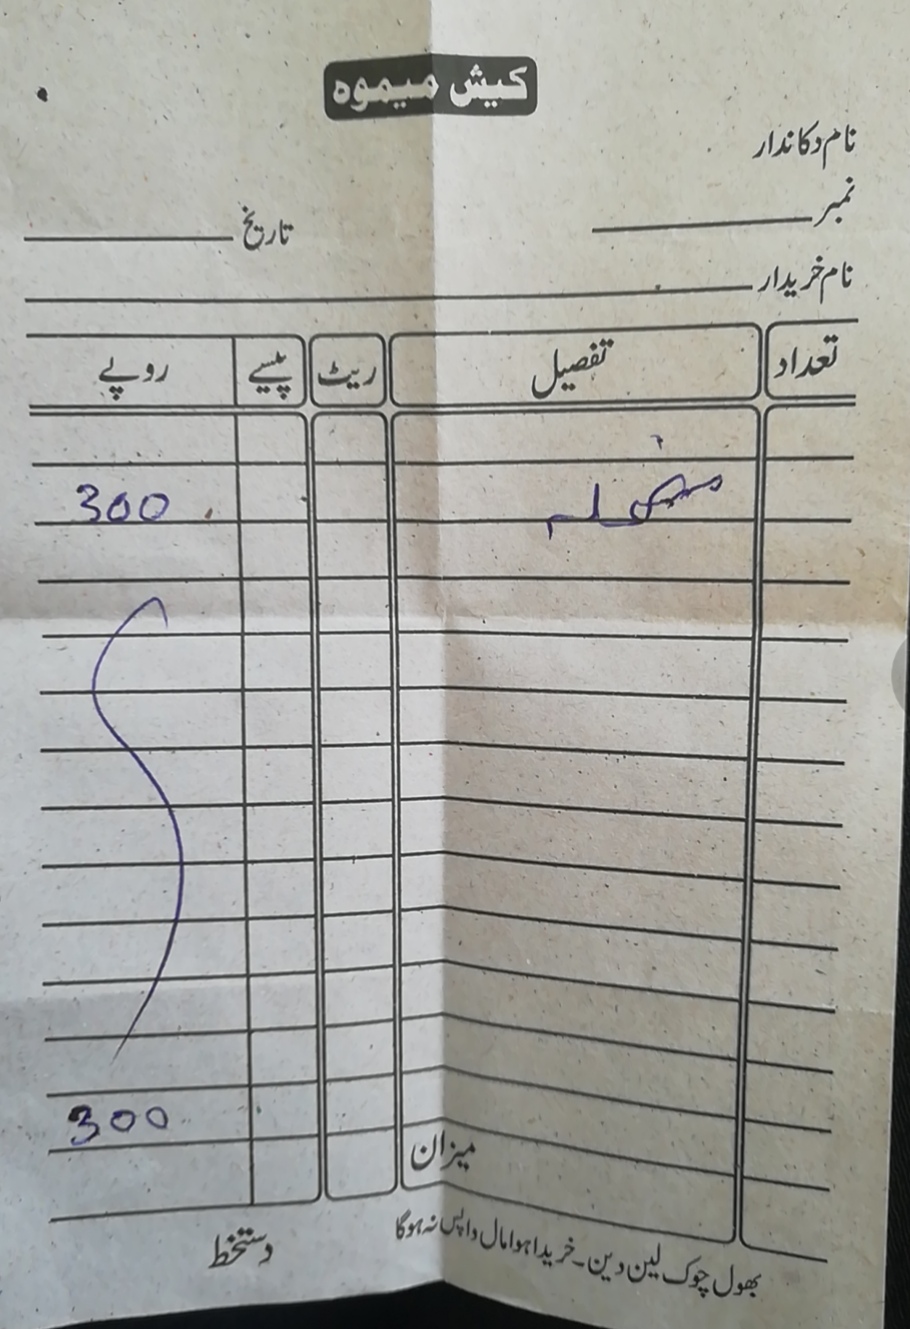 کیش میموہ
نام دکاندار
نمبر
تاریخ
نام خریدار
تعداد تفصیل ریٹ پیسے روپے
300
300
میزان
بھول چوک لین دین۔ خریدا ہوا مال واپس نہ ہوگا
دستخط